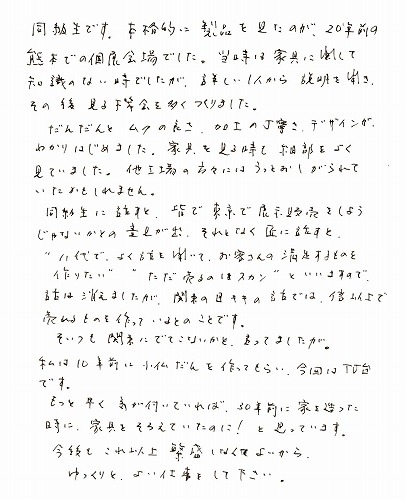 同級生です。本格的に製品を見たのが、20年前の
熊本での個展会場でした。当時は家具に関して
知識のない時でしたが、詳しい人から説明を聞き、
その後見る機会を多くつくりました。
だんだんと ムクの良さ、加工の丁寧さ、デザインが、
わかりはじめました。家具を見る時も細部をよく
見ていました。他工場の方々にはうっとおしがられて
いたかもしれません。
同級生に話すと、皆で東京で展示販売をしよう
じゃないかとの意見が出、それとなく匠に話すと、
"八代で、よく話を聞いて、お客さんの満足するものを
作りたい" "ただ売るのはスカン"といいますので、
話は消えましたが、関東の目キキの話では、倍以上で
売れるものを作っているとのことです。
そいつも関東にでてこないかと、言ってましたが。
私は10年前に小仏だんを作ってもらい、今回はTV台
です。
もっと早く気が付いていれば、30年前に家を造った
時に、家具をそろえていたのに!と思っています。
今後もこれ以上繁盛しなくてよいから、
ゆっくりと、よい仕事をして下さい。